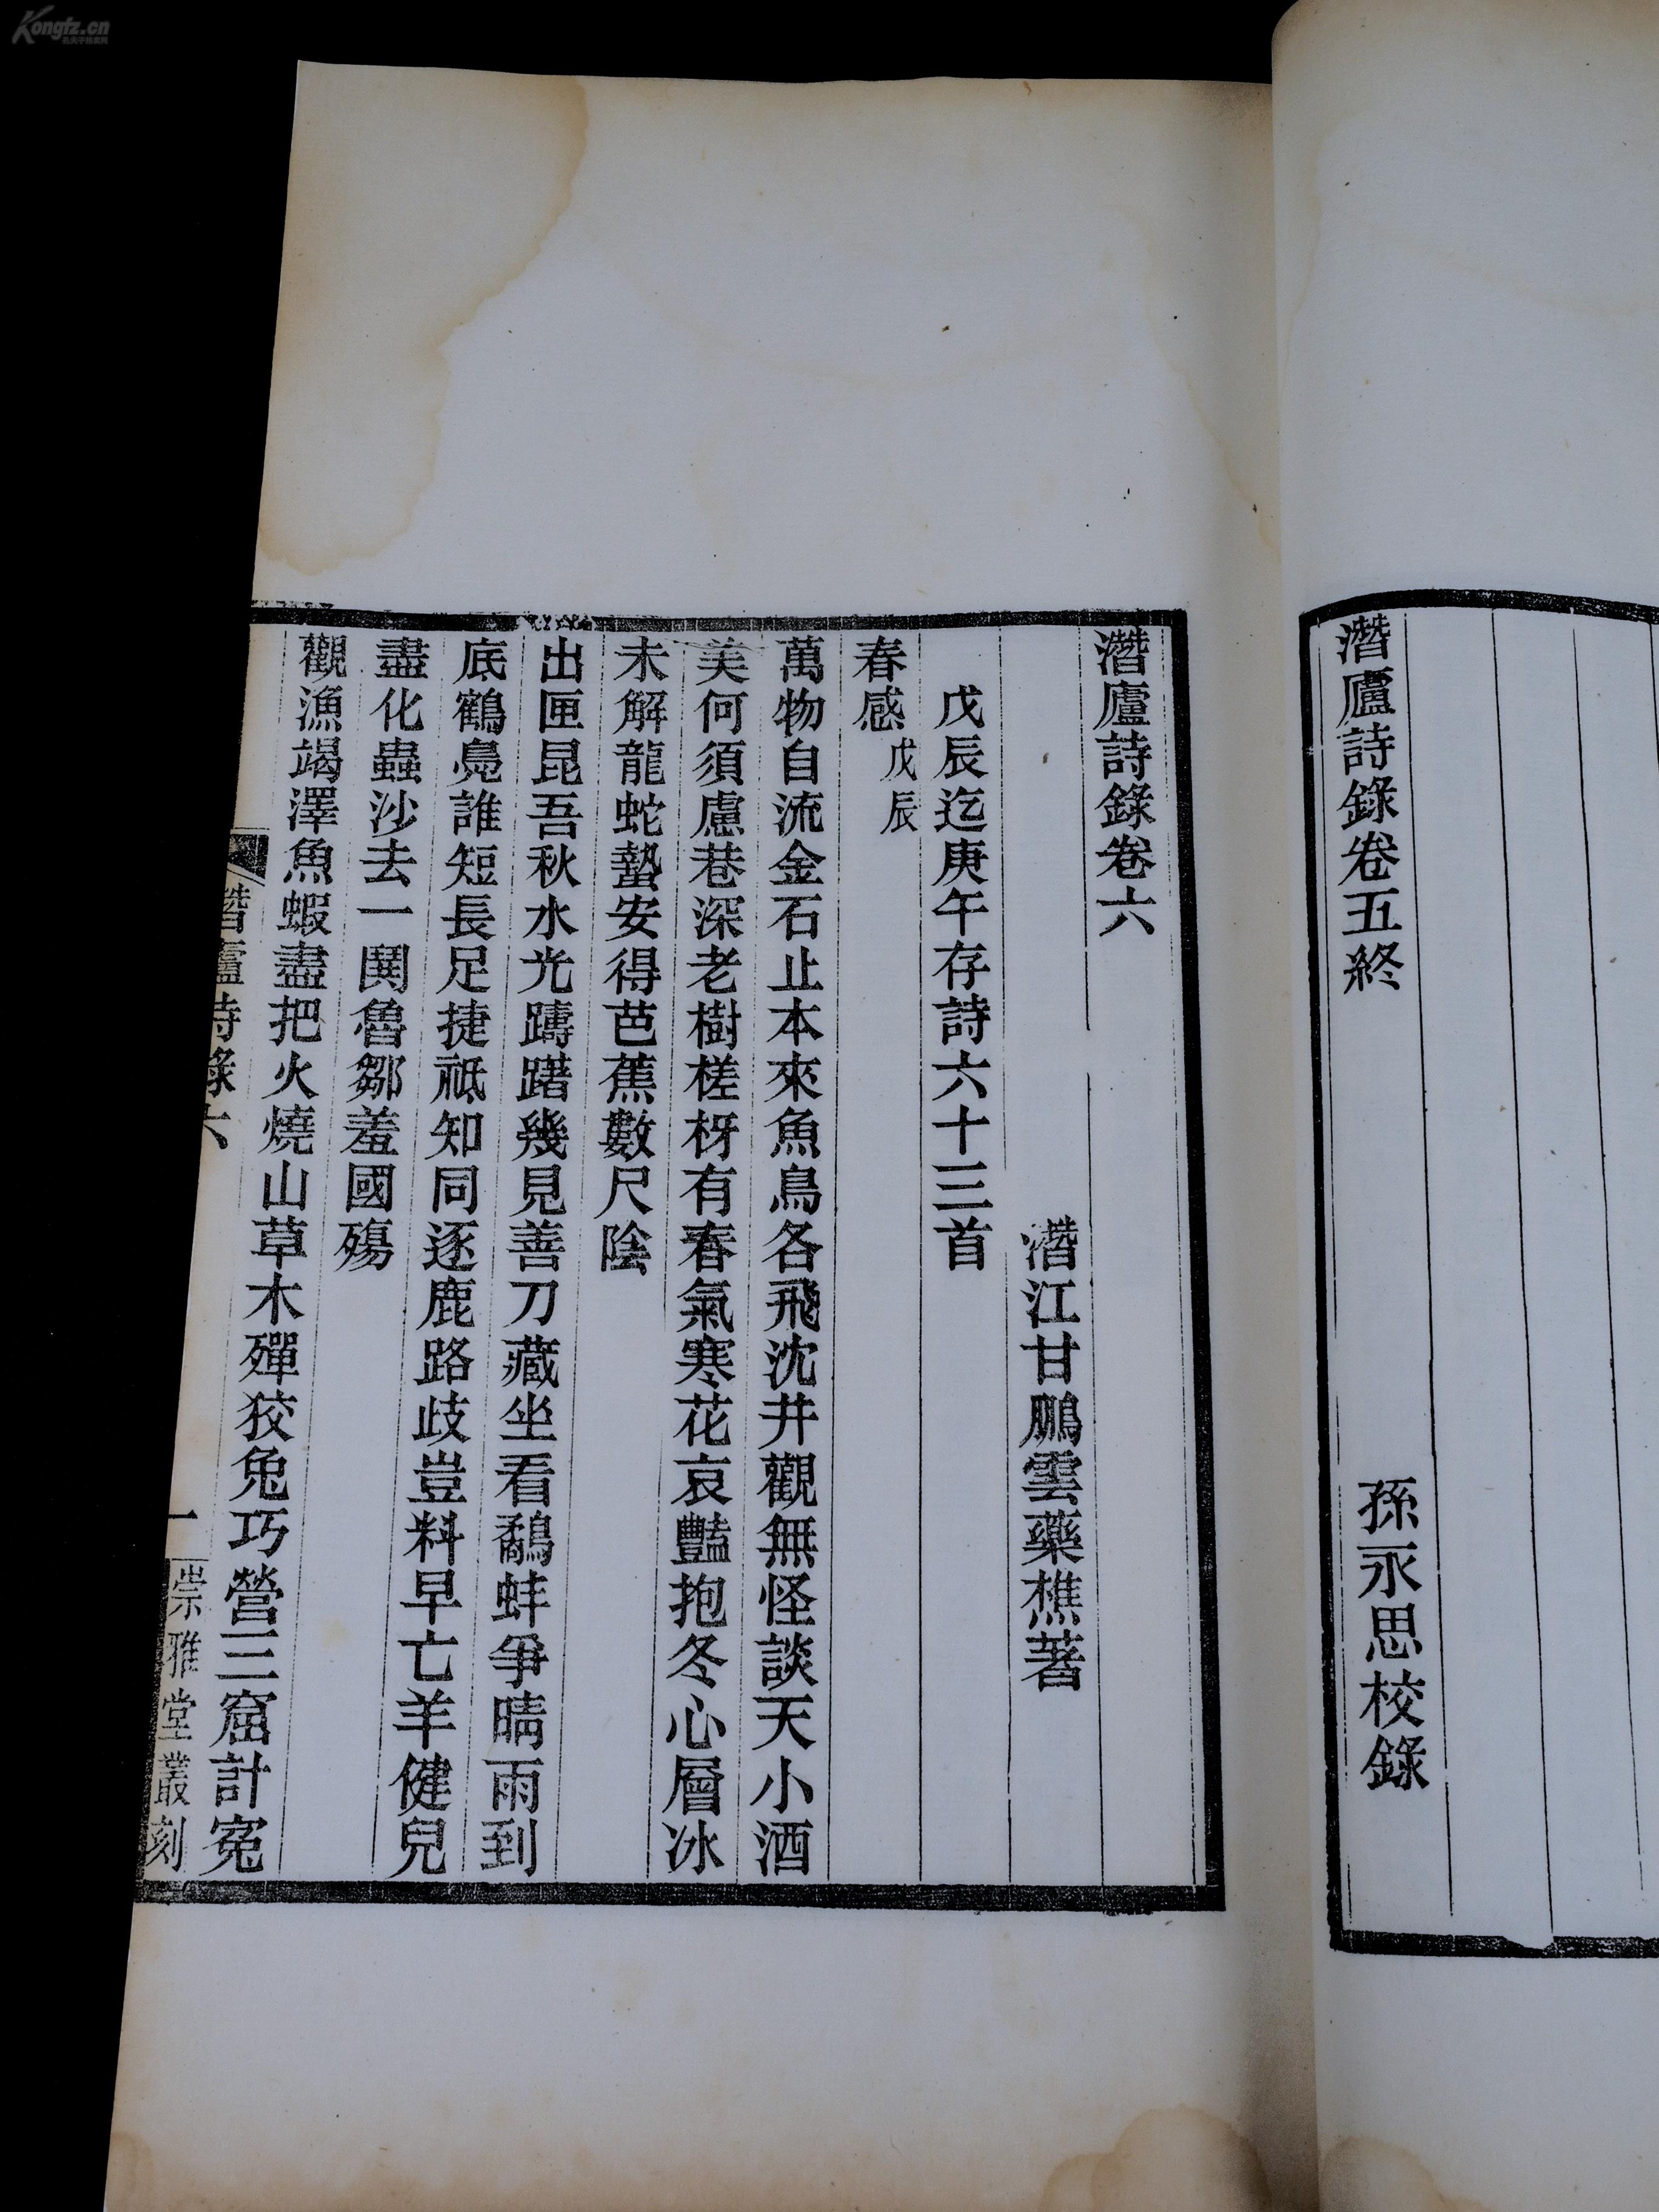 潛廬詩錄卷五終
孫永思校錄
潛廬詩錄卷六
潛江甘鵬雲藥樵著
戊辰迄庚午存詩六十三首
春感 戊辰
萬物自流金石止本來魚鳥各飛沈井觀無怪談天小酒
美何須慮巷深老樹槎枒有春氣寒花哀豔抱冬心層冰
未解龍蛇蟄安得芭蕉數尺陰
出匣昆吾秋水光躊躇幾見善刀藏坐看鷸蚌爭晴雨到
底鶴鳧誰短長足捷祗知同逐鹿路歧豈料早亡羊健兒
盡化蟲沙去一鬨魯鄒羞國殤
觀漁竭澤魚蝦盡把火燒山草木殫狡兔巧營三窟計冤
潛廬詩錄六
一
崇雅堂叢刻
Kongfz.cn
孔夫子舊書網